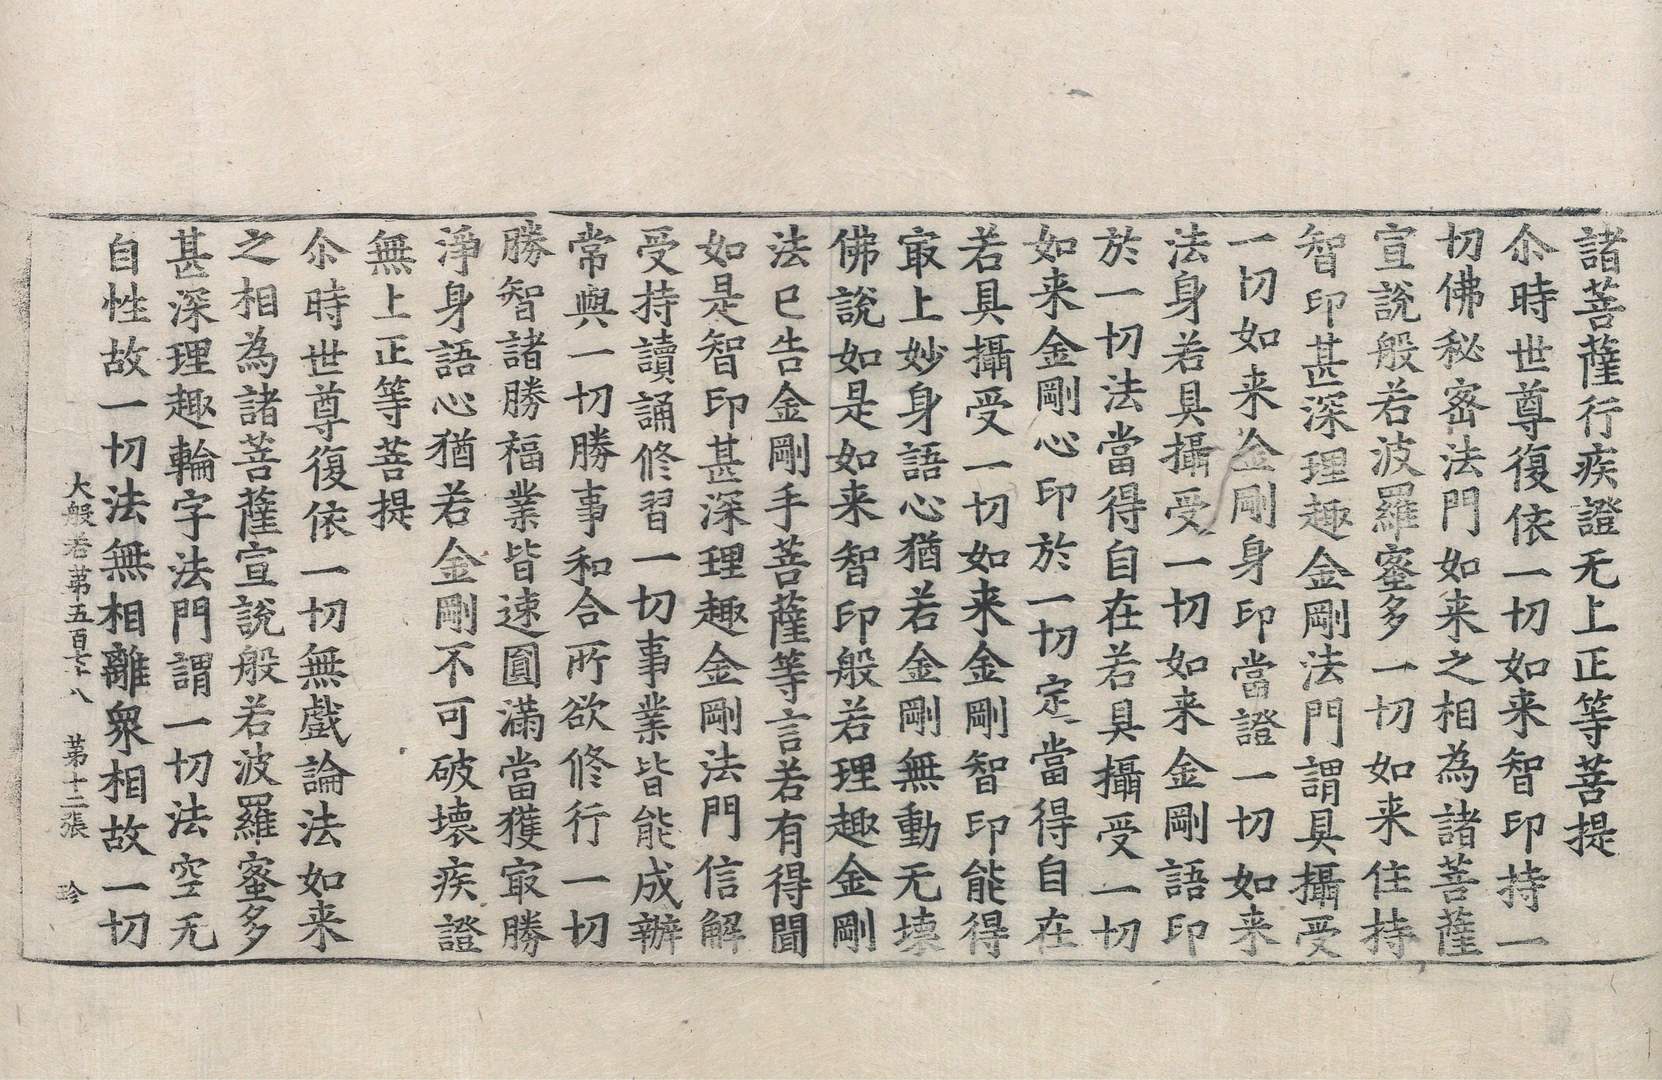 諸菩薩行疾證无上正等菩提
尒時世尊復依一切如来智印持一
切佛秘密法門如来之相為諸菩薩
宣說般若波羅蜜多一切如来住持
智印甚深理趣金剛法門謂具攝受
一切如来金剛身印當證一切如来
法身若具攝受一切如来金剛語印
於一切法當得自在若具攝受一切
如来金剛心印於一切定當得自在
若具攝受一切如来金剛智印能得
㝡上妙身語心猶若金剛無動无壊
佛說如是如来智印般若理趣金剛
法已告金剛手菩薩等言若有得聞
如是智印甚深理趣金剛法門信解
受持讀誦修習一切事業皆能成辦
常與一切勝事和合所欲修行一切
勝智諸勝福業皆速圓滿當獲㝡勝
淨身語心猶若金剛不可破壊疾證
無上正等菩提
尒時世尊復依一切無戲論法如来
之相為諸菩薩宣說般若波羅蜜多
甚深理趣輪字法門謂一切法空无
自性故一切法無相離衆相故一切
大般若苐五百七十八 苐十二張 珎